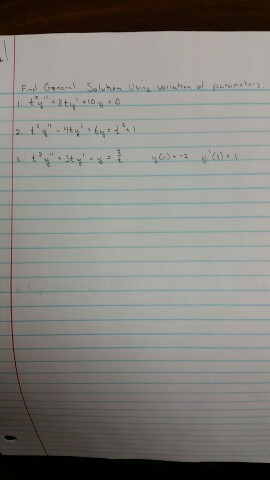 Find General Solution Using variation of parameters
1. t²y'' + 8ty' + 10y = 0
2. t²y'' - 4ty' + 6y = t³ + 1
3. t²y'' + 3ty' + y = y(1) = -2 y'(1) = 1